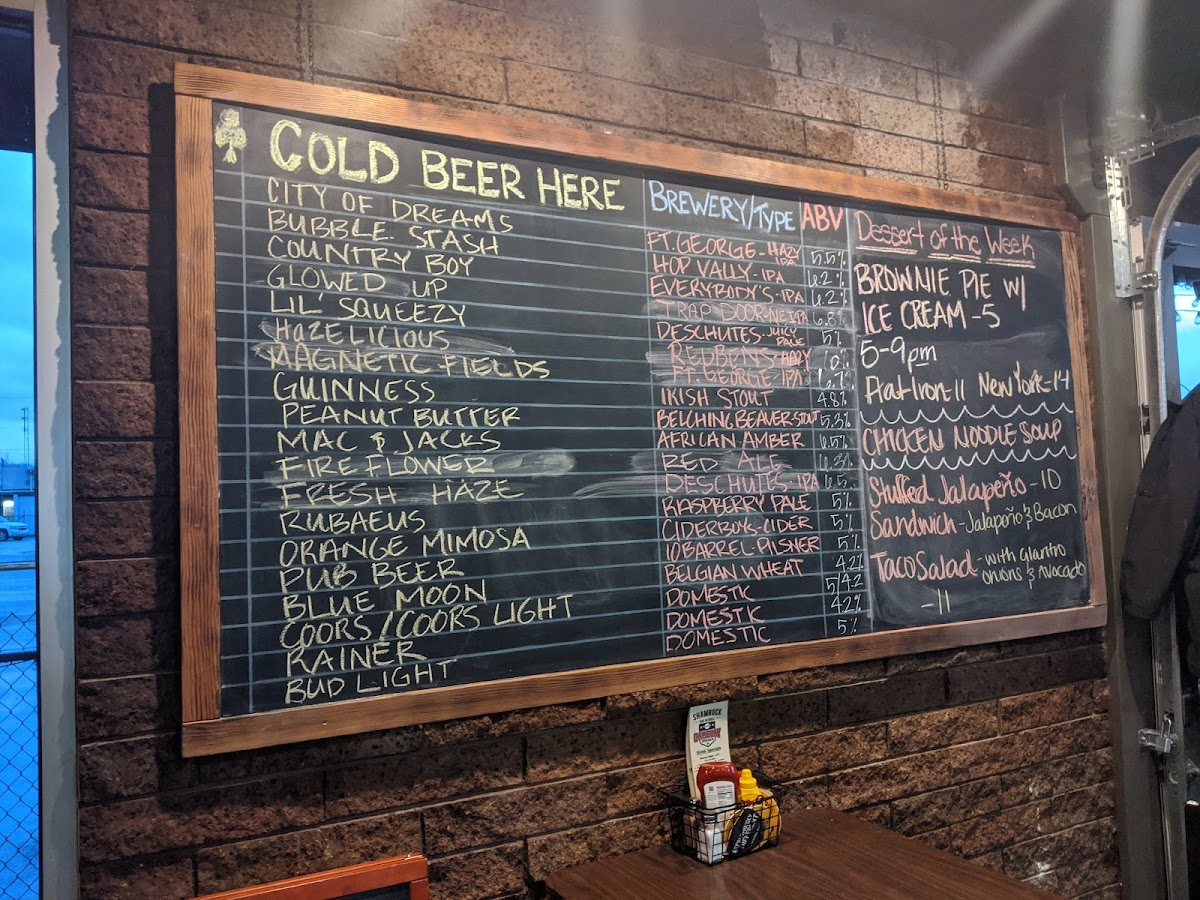 COLD BEER HERE BREWERY/TYPE ABV
CITY OF DREAMS FT. GEORGE - HAZY IPA 5.5%
BUBBLE STASH HOP VALLY - IPA 6.2%
COUNTRY BOY EVERYBODY'S - IPA 6.2%
GLOWED UP TRAP DOOR - NEIPA 6.8%
LIL' SQUEEZY DESCHUTES - JUICY PALE 5%
HAZELICIOUS REUBENS - HAZY
MAGNETIC FIELDS FT. GEORGE IPA
GUINNESS IRISH STOUT 4.8%
PEANUT BUTTER BELCHING BEAVER - STOUT 5.3%
MAC & JACKS AFRICAN AMBER 6.5%
FIRE FLOWER RED ALE
FRESH HAZE DESCHUTES - IPA 6.5%
RUBAEUS RASPBERRY PALE 5%
ORANGE MIMOSA CIDERBOYS - CIDER 5%
PUB BEER 10 BARREL - PILSNER 5%
BLUE MOON BELGIAN WHEAT 4.2%
COORS / COORS LIGHT DOMESTIC 5/4.2
RAINER DOMESTIC 4.2%
BUD LIGHT DOMESTIC 5%
Dessert of the Week
BROWNIE PIE W/
ICE CREAM - 5
5-9pm
Flat Iron - 11 New York - 14
CHICKEN NOODLE SOUP
Stuffed Jalapeño - 10
Sandwich - Jalapeño & Bacon
Taco Salad - with cilantro
onions & Avocado
- 11
SHAMROCK